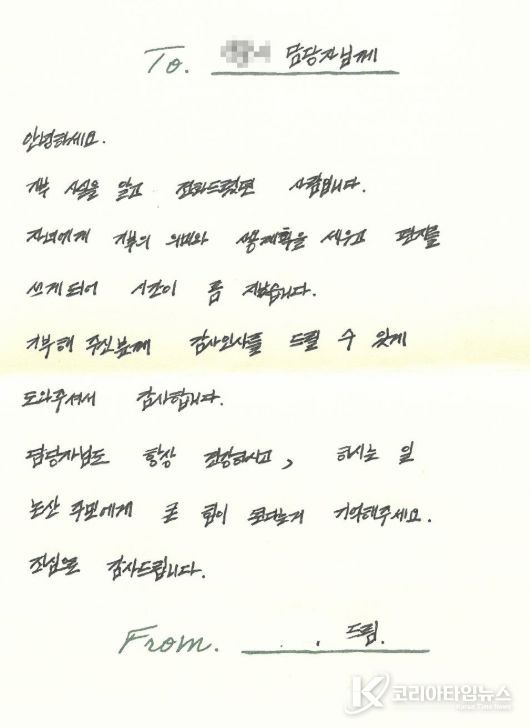 To. 담당자님께
안녕하세요.
기부 사실을 알고 전화드렸던 사람입니다.
자녀에게 기부의 의미와 사용계획을 세우고 편지를
쓰게되어 시간이 좀 지났습니다.
기부해 주신분께 감사인사를 드릴 수 있게
도와주셔서 감사합니다.
담당자님도 항상 건강하시고, 하시는 일
논산 주민에게 큰 힘이 된다는거 기억해주세요.
진심으로 감사드립니다.
From. 드림.
코리아타임뉴스
Korea Time News